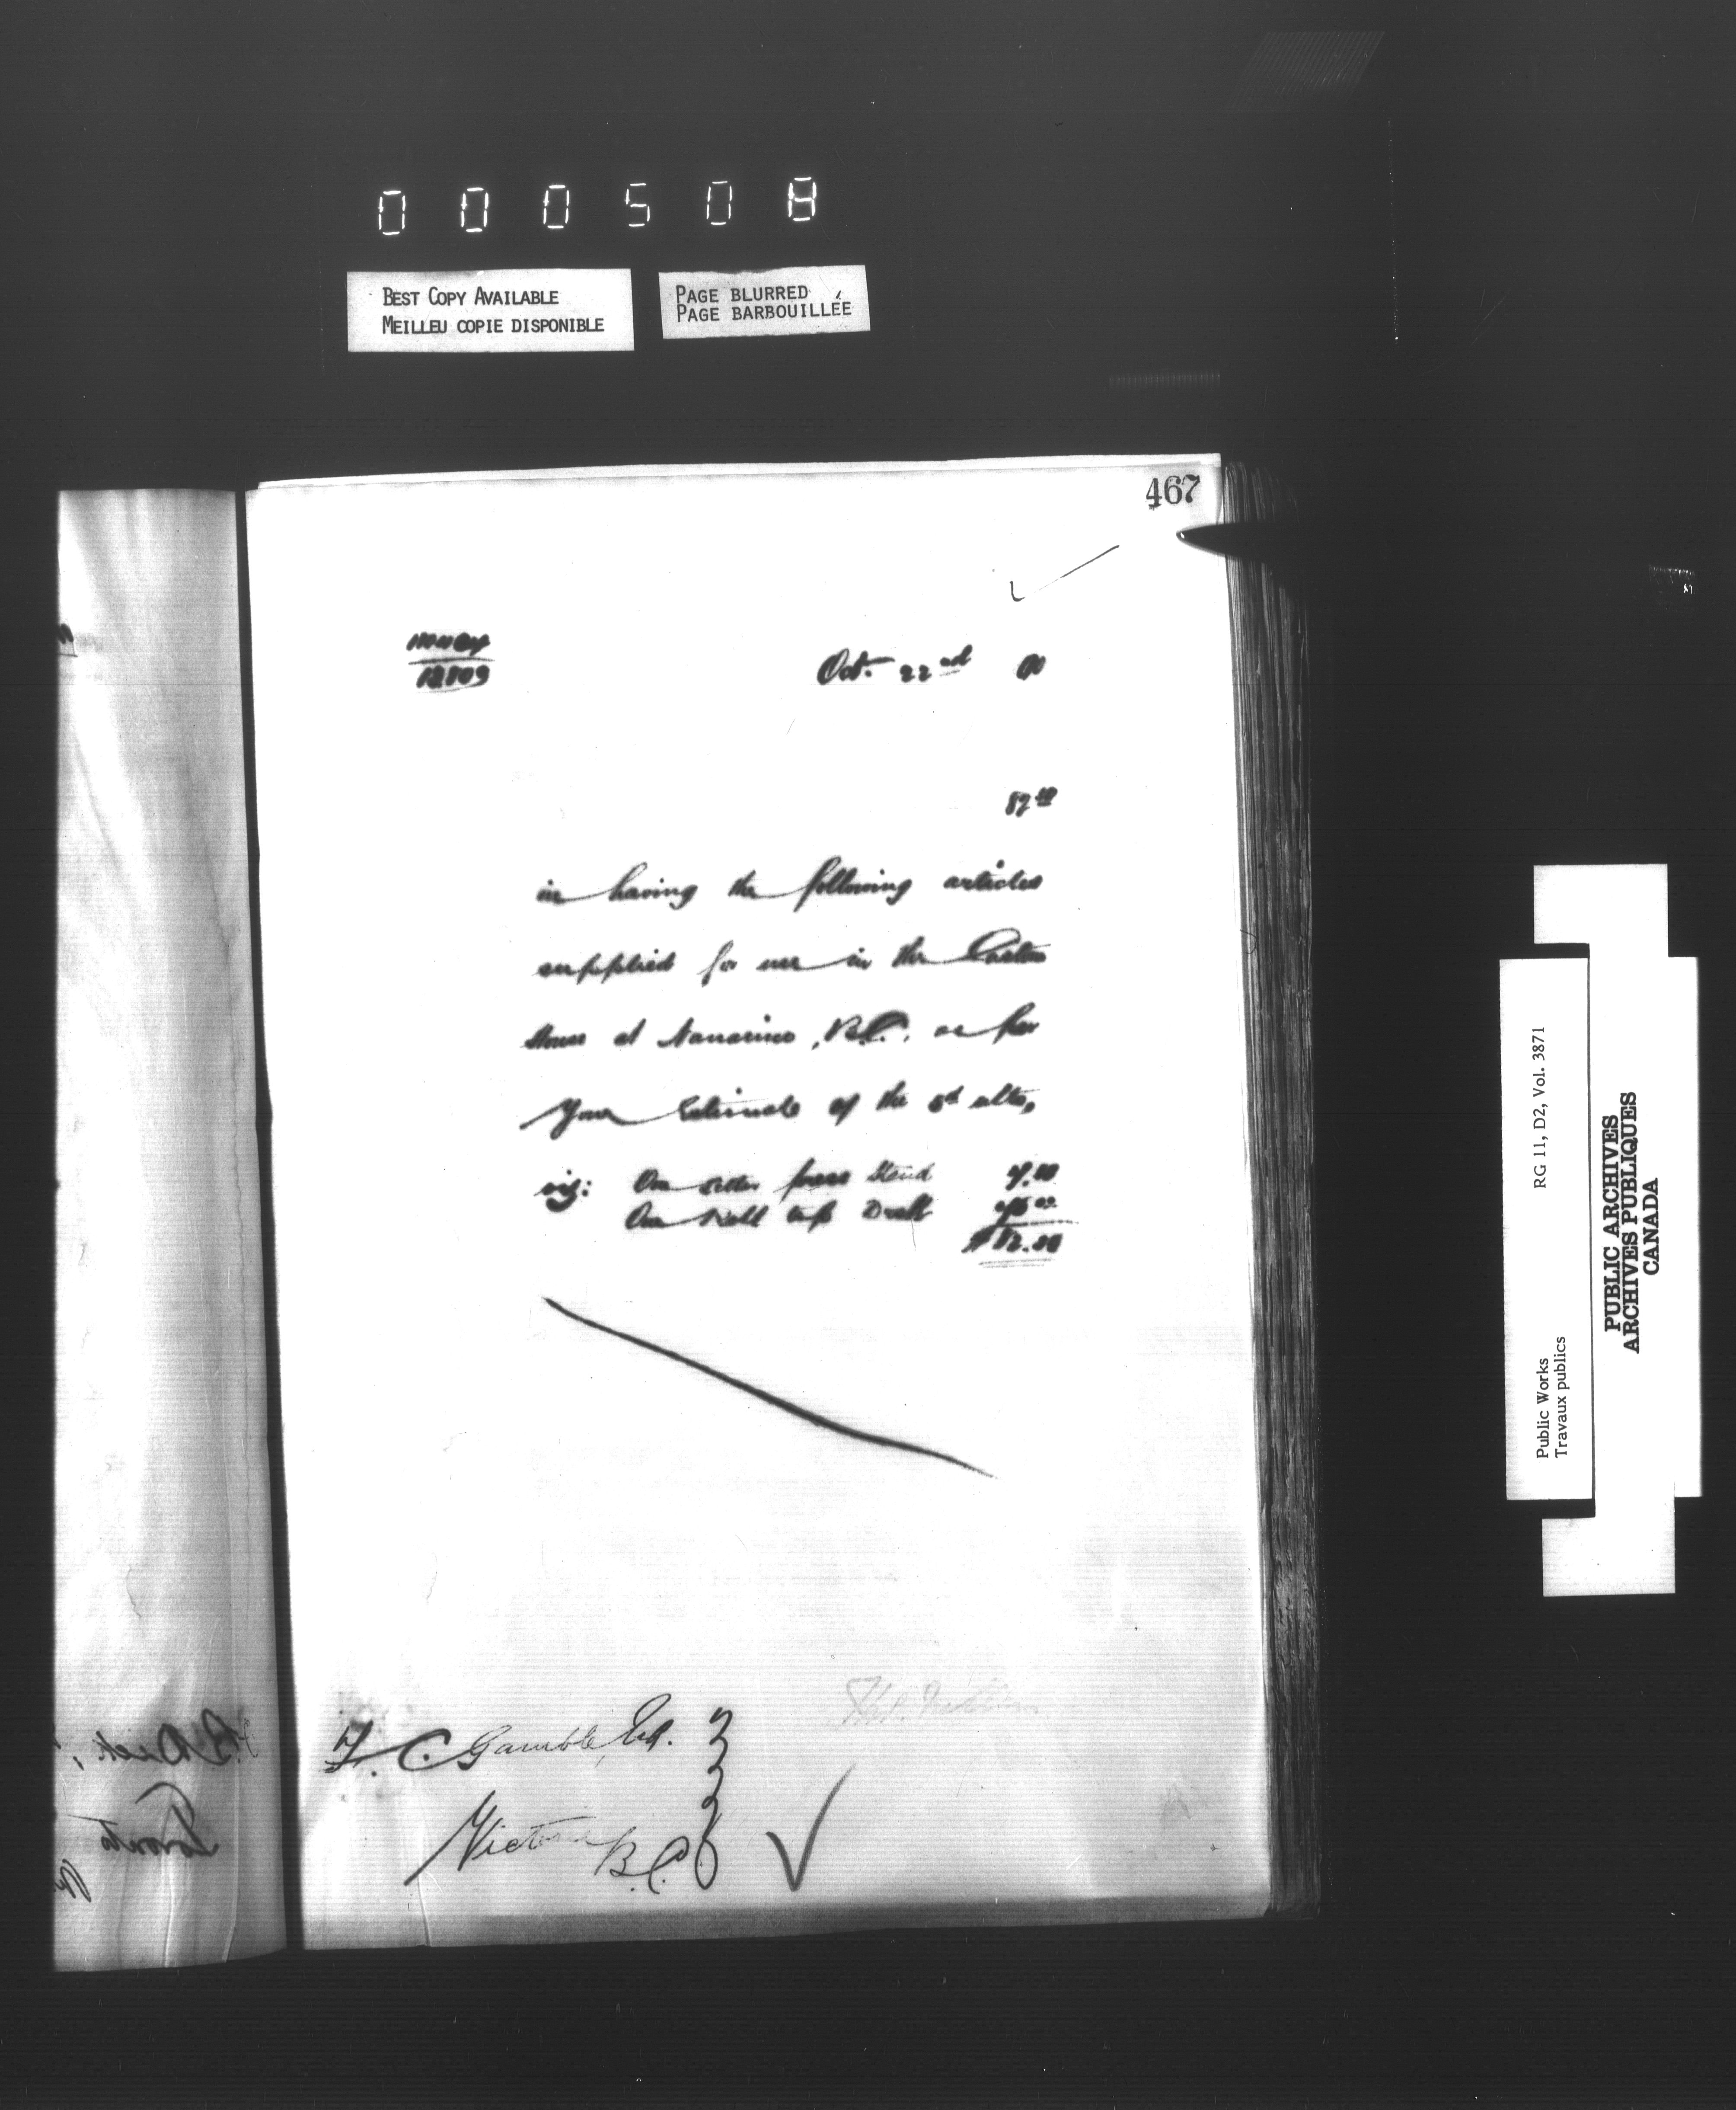 000508
BEST COPY AVAILABLE
MEILLEU COPIE DISPONIBLE
PAGE BLURRED
PAGE BARBOUILLÉE
467
Oct. 22nd
in having the following articles
supplied for use in the Custom
House at Nanaimo, B.C., as per
Your Estimate of the ulto,
viz: One Letter press Stand
One Roll top Desk
F. C. Gamble, Esq.
Victoria B.C.
Toronto
Public Works
Travaux publics
RG 11, D2, Vol. 3871
PUBLIC ARCHIVES
ARCHIVES PUBLIQUES
CANADA